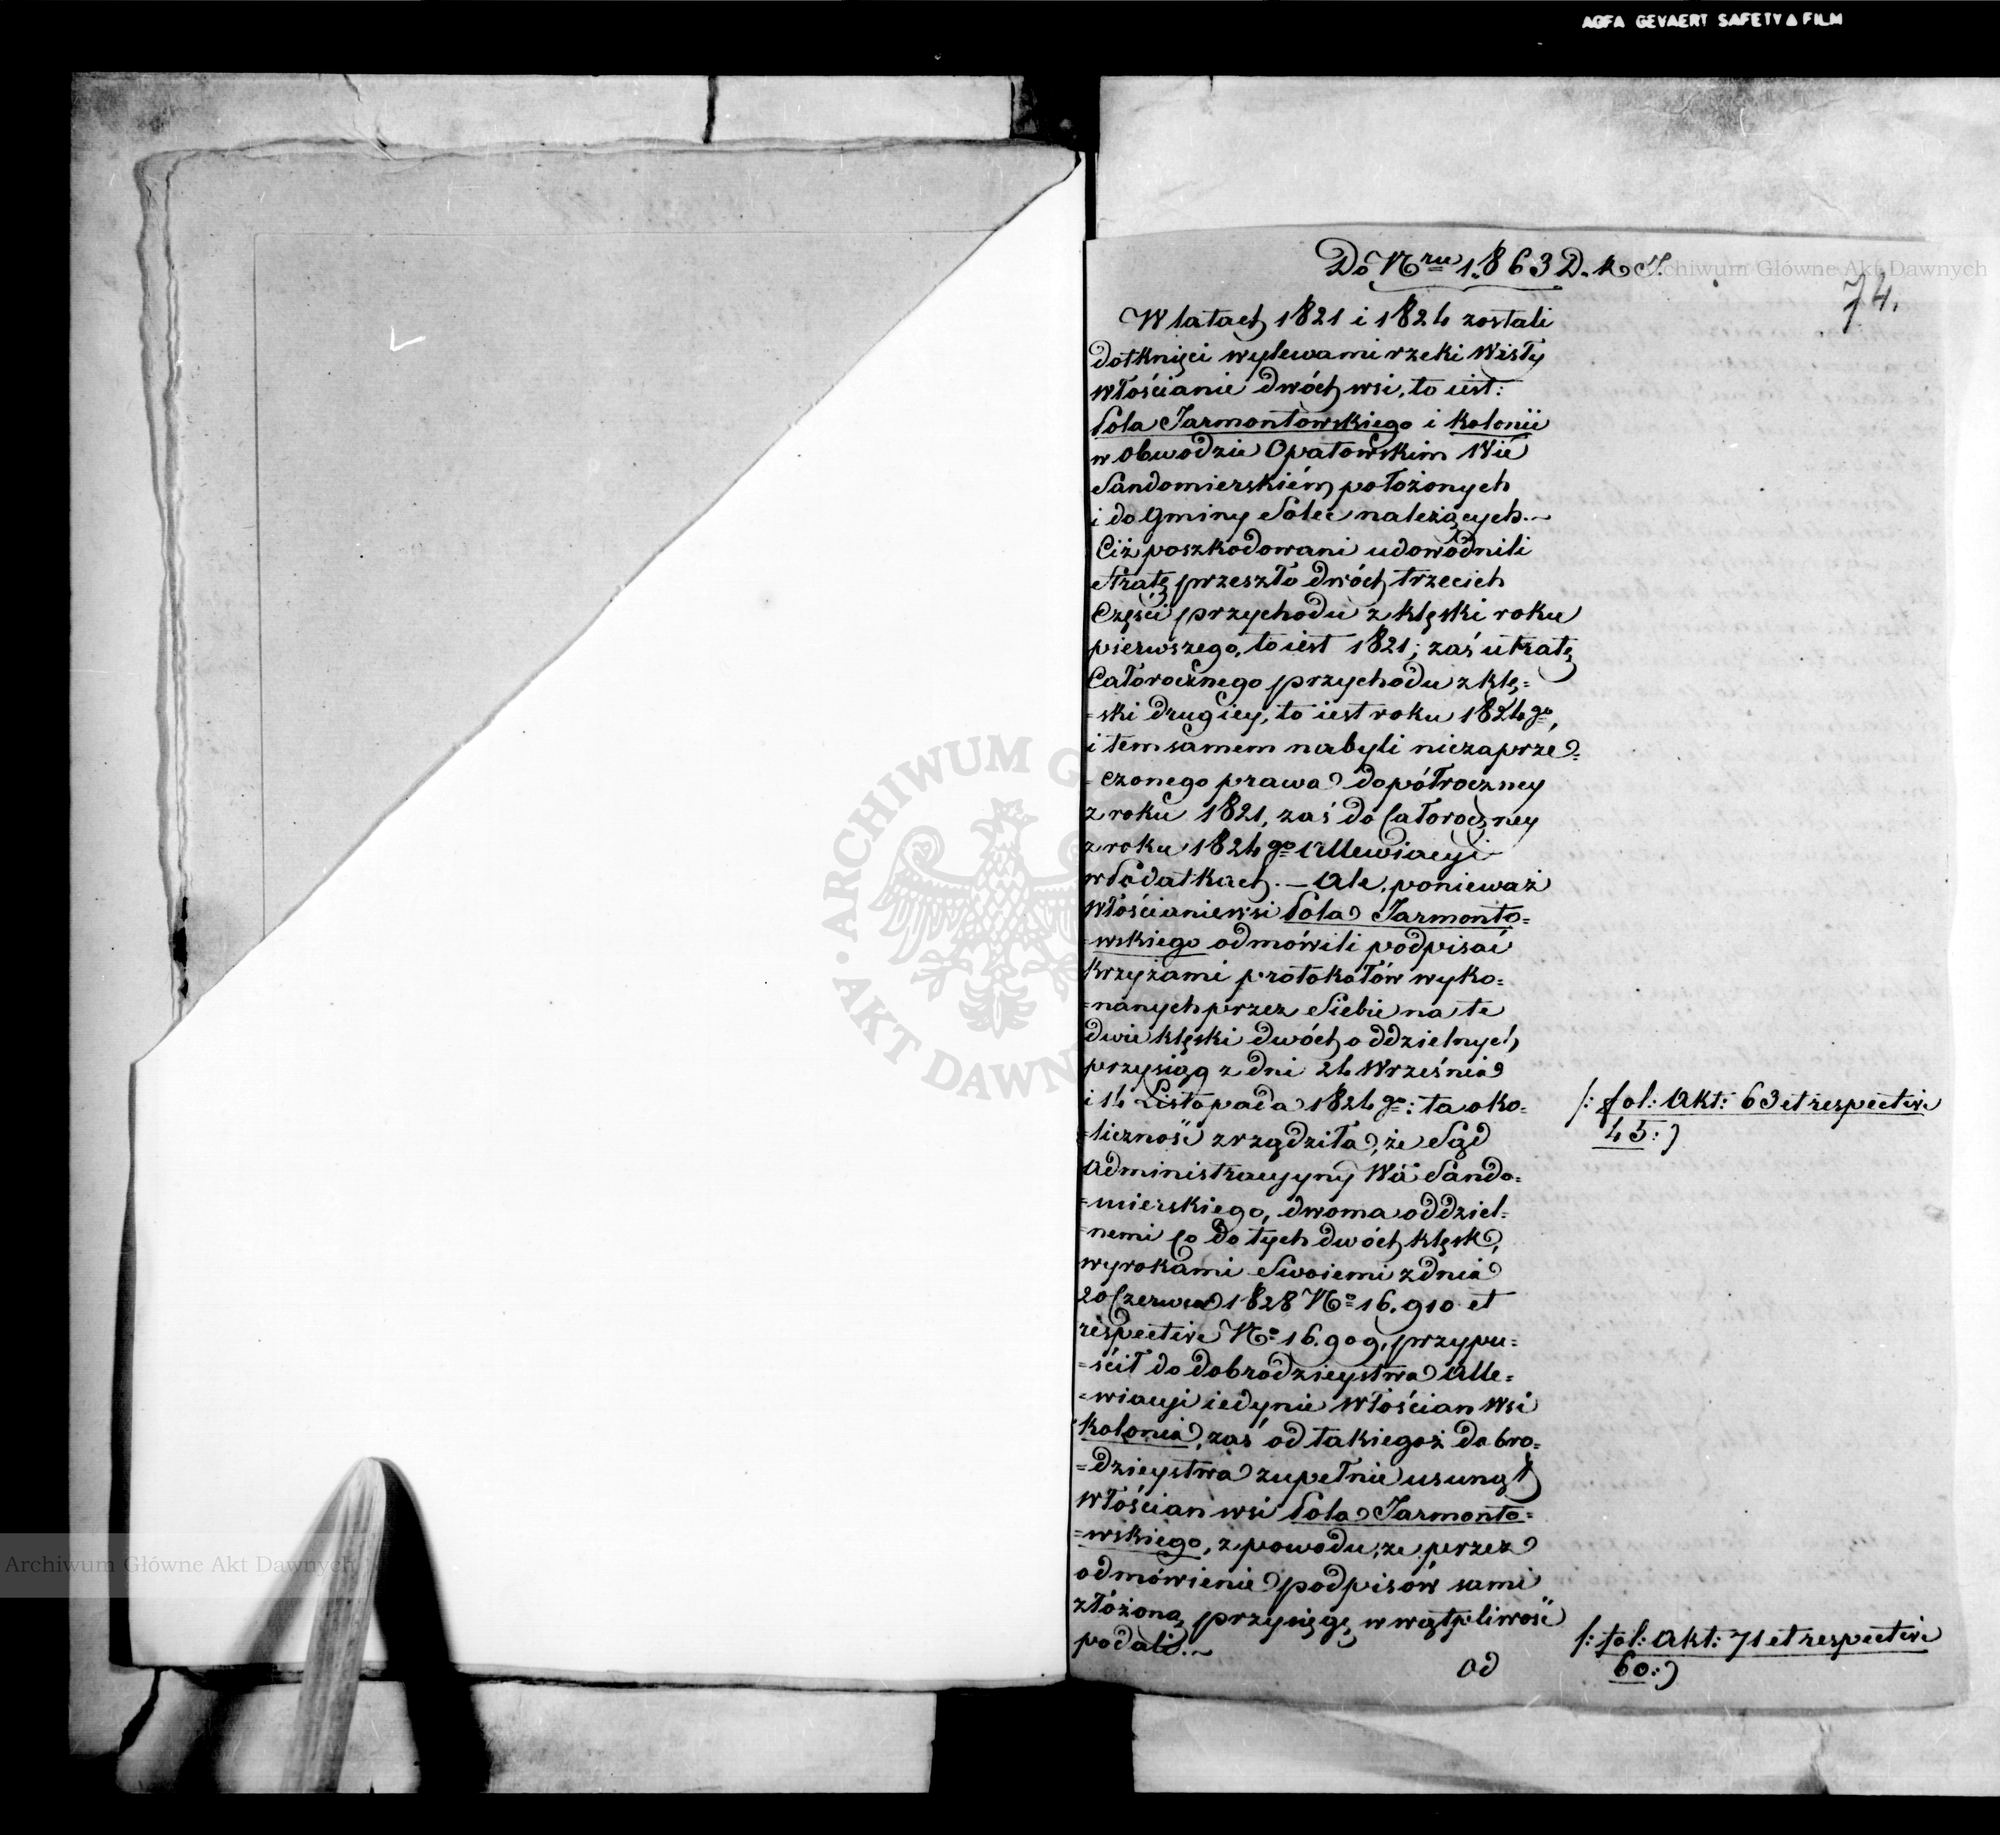 AGFA GEVAERT SAFETY FILM
Do Nru 1.863 D. K. S.
Archiwum Główne Akt Dawnych
74.
W latach 1821 i 1824 zostali
dotknięci wylewami rzeki Wisły
włościanie dwóch wsi, to iest:
Pola Jarmontowskiego i Kolonii
w Obwodzie Opatowskim Wie
Sandomierskiém położonych
i do Gminy Solec należących.—
Ciż poszkodowani udowodnili
stratę przeszło dwóch trzecich
części przychodu z klęski roku
pierwszego, to iest 1821; zaś utratę
całorocznego przychodu z klę=
=ski drugiey, to iest roku 1824go,
i tem samem nabyli niezaprze=
=czonego prawa do półroczney
z roku 1821, zaś do całoroczney
z roku 1824go Allewiacyi
w Podatkach.— Ale, ponieważ
włościanie wsi Pola Jarmonto=
=wskiego odmówili podpisać
krzyżami protokołów wyko=
=nanych przez siebie na te
dwie klęski dwóch oddzielnych
przysiąg z dni 24 Września
i 14 Listopada 1824go: ta oko=
=liczność zrządziła, że Sąd
Administracyyny Wa Sando=
=mierskiego, dwoma oddziel=
=nemi co do tych dwóch klęsk,
wyrokami swoiemi z dnia
20 Czerwca 1828 No 16.910 et
respective No 16.909, przypu=
=ścił do dobrodzieystwa Alle=
=wiacyi iedynie włościan wsi
Kolonia, zaś od takiegoż dobro=
=dzieystwa zupełnie usunął
włościan wsi Pola Jarmonto=
=wskiego, z powodu, że przez
odmówienie podpisów sami
złożoną przysięgę w wątpliwość
podali.—
od
/: fol: Akt: 63 et respective
45:)
/: fol: Akt: 71 et respective
60:)
ARCHIWUM G
AKT DAWN
Archiwum Główne Akt Dawnych